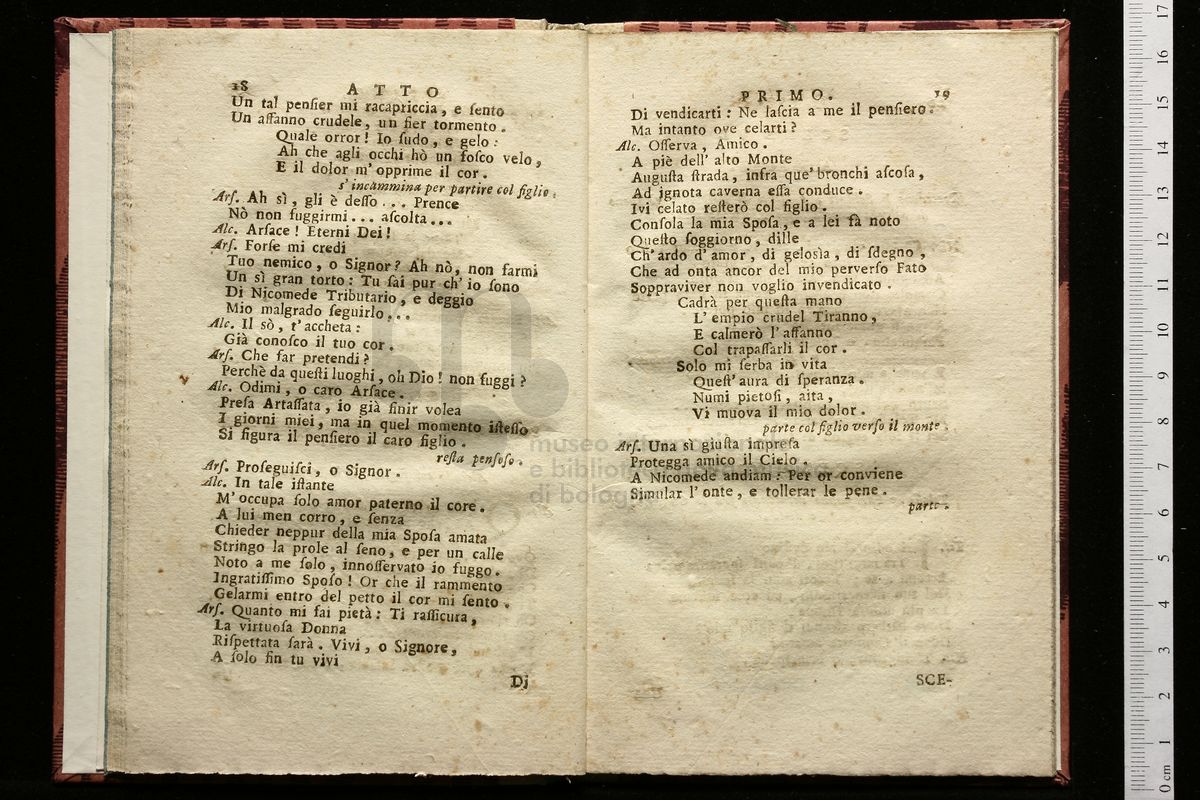 18 ATTO
Un tal penſier mi racapriccia, e ſento
Un affanno crudele, un fier tormento.
Quale orror! Io ſudo, e gelo:
Ah che agli occhi hò un foſco velo,
E il dolor m'opprime il cor.
s'incammina per partire col figlio.
Arſ. Ah sì, gli è deſſo... Prence
Nò non fuggirmi... aſcolta...
Alc. Arſace! Eterni Dei!
Arſ. Forſe mi credi
Tuo nemico, o Signor? Ah nò, non farmi
Un sì gran torto: Tu ſai pur ch'io ſono
Di Nicomede Tributario, e deggio
Mio malgrado ſeguirlo...
Alc. Il sò, t'accheta:
Già conoſco il tuo cor.
Arſ. Che far pretendi?
Perchè da queſti luoghi, oh Dio! non fuggi?
Alc. Odimi, o caro Arſace.
Preſa Artaſſata, io già finir volea
I giorni miei, ma in quel momento iſteſſo
Si figura il penſiero il caro figlio.
reſta penſoſo.
Arſ. Proſeguiſci, o Signor.
Alc. In tale iſtante
M'occupa ſolo amor paterno il core.
A lui men corro, e ſenza
Chieder neppur della mia Spoſa amata
Stringo la prole al ſeno, e per un calle
Noto a me ſolo, innoſſervato io fuggo.
Ingratiſſimo Spoſo! Or che il rammento
Gelarmi entro del petto il cor mi ſento.
Arſ. Quanto mi fai pietà: Ti raſſicura,
La virtuoſa Donna
Riſpettata ſarà. Vivi, o Signore,
A ſolo fin tu vivi
Dj
PRIMO. 19
Di vendicarti: Ne laſcia a me il penſiero.
Ma intanto ove celarti?
Alc. Oſſerva, Amico.
A piè dell'alto Monte
Auguſta ſtrada, infra que' bronchi aſcoſa,
Ad jgnota caverna eſſa conduce.
Ivi celato reſterò col figlio.
Conſola la mia Spoſa, e a lei fà noto
Queſto ſoggiorno, dille
Ch'ardo d'amor, di geloſìa, di ſdegno,
Che ad onta ancor del mio perverſo Fato
Soppraviver non voglio invendicato.
Cadrà per queſta mano
L'empio crudel Tiranno,
E calmerò l'affanno
Col trapaſſarli il cor.
Solo mi ſerba in vita
Queſt'aura di ſperanza.
Numi pietoſi, aita,
Vi muova il mio dolor.
parte col figlio verſo il monte.
Arſ. Una sì giuſta impreſa
Protegga amico il Cielo.
A Nicomede andiam: Per or conviene
Simular l'onte, e tollerar le pene.
parte.
SCE-
museo
e bibliot
di bolog
0 cm 1 2 3 4 5 6 7 8 9 10 11 12 13 14 15 16 17